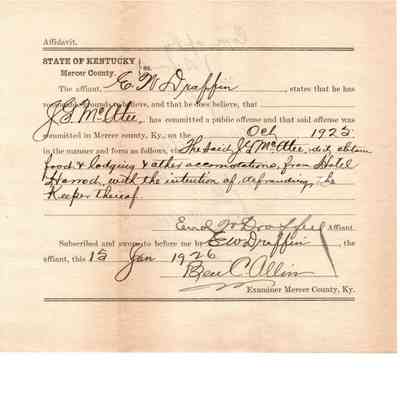 Affidavit.
STATE OF KENTUCKY } ss.
Mercer County.
The affiant, E W Draffin, states that he has
reasonable grounds to believe, and that he does believe, that
J. L McAtee, has committed a public offense and that said offense was
committed in Mercer county, Ky., on the Oct 1925
in the manner and form as follows, the The said J L McAtee, did obtain
food & lodging & other accomotations, from Hotel
Harrod, with the intention of defrauding, the
Keeper thereof.
W Draffin Affiant.
Subscribed and sworn to before me by E W Draffin, the
affiant, this 15 Jan 1926
Ben C. Allin
Examiner Mercer County, Ky.